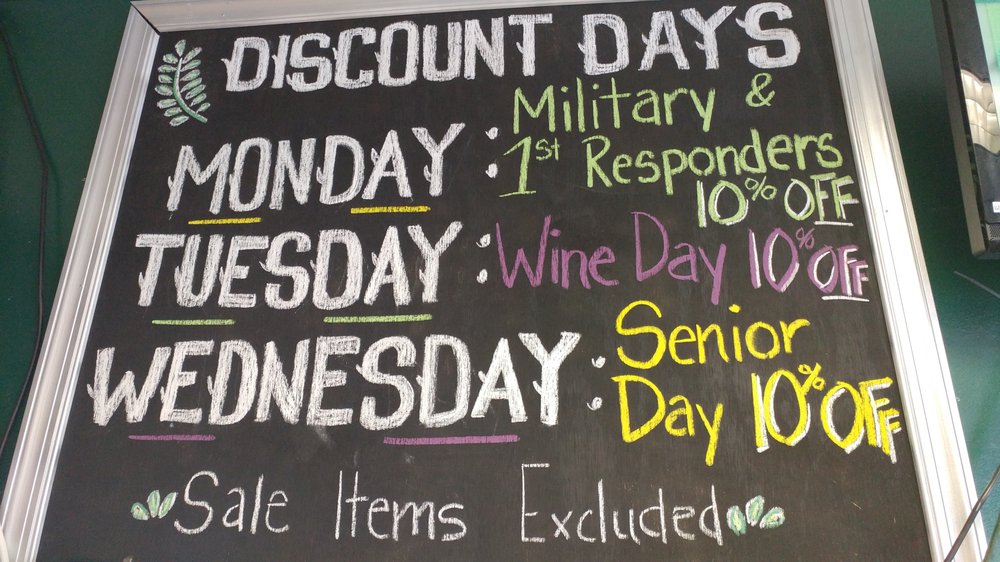 DISCOUNT DAYS
MONDAY : Military &
1st Responders
10% OFF
TUESDAY : Wine Day 10% OFF
WEDNESDAY : Senior
Day 10% OFF
Sale Items Excluded